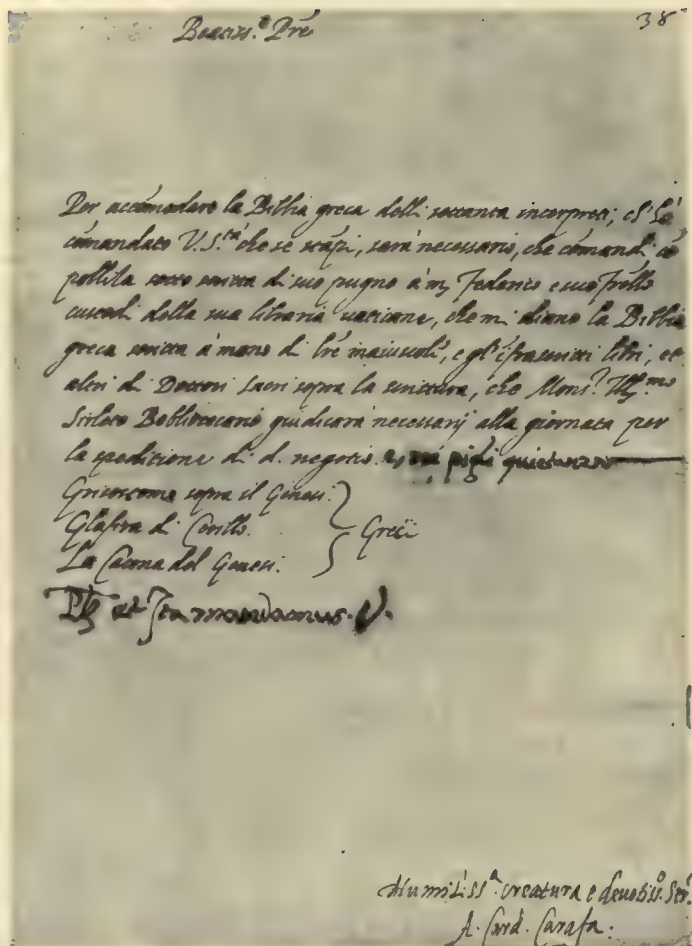 Beatiss.e Prē 38
Per accōmodare la Bibbia greca delli settanta interpreti, ch' hà
cōmandato V. S.tà che se stāpi, sarà necessario, che cōmandi cō
pollita sotto scritta di suo pugno à m. Federico e suo frēllo
custodi della sua libraria vaticana, che mi diano la Bibbia
greca scritta à mano di lrē maiuscole, e gl' ifrascritti libri, et
altri di Dottori sacri sopra la scrittura, che Mons.r Ill.mo
Sirleto Bibliotecario giudicarà necessarij alla giornata per
la speditione di d. negotio. e, ne pigli quietanza
Grisostomo sopra il Genesi.
Glafira di Cirillo. Greci
La Catena del Genesi.
ita mandamus.
Humiliss.a creatura e devotiss.o Ser.
A. Card. Carafa.